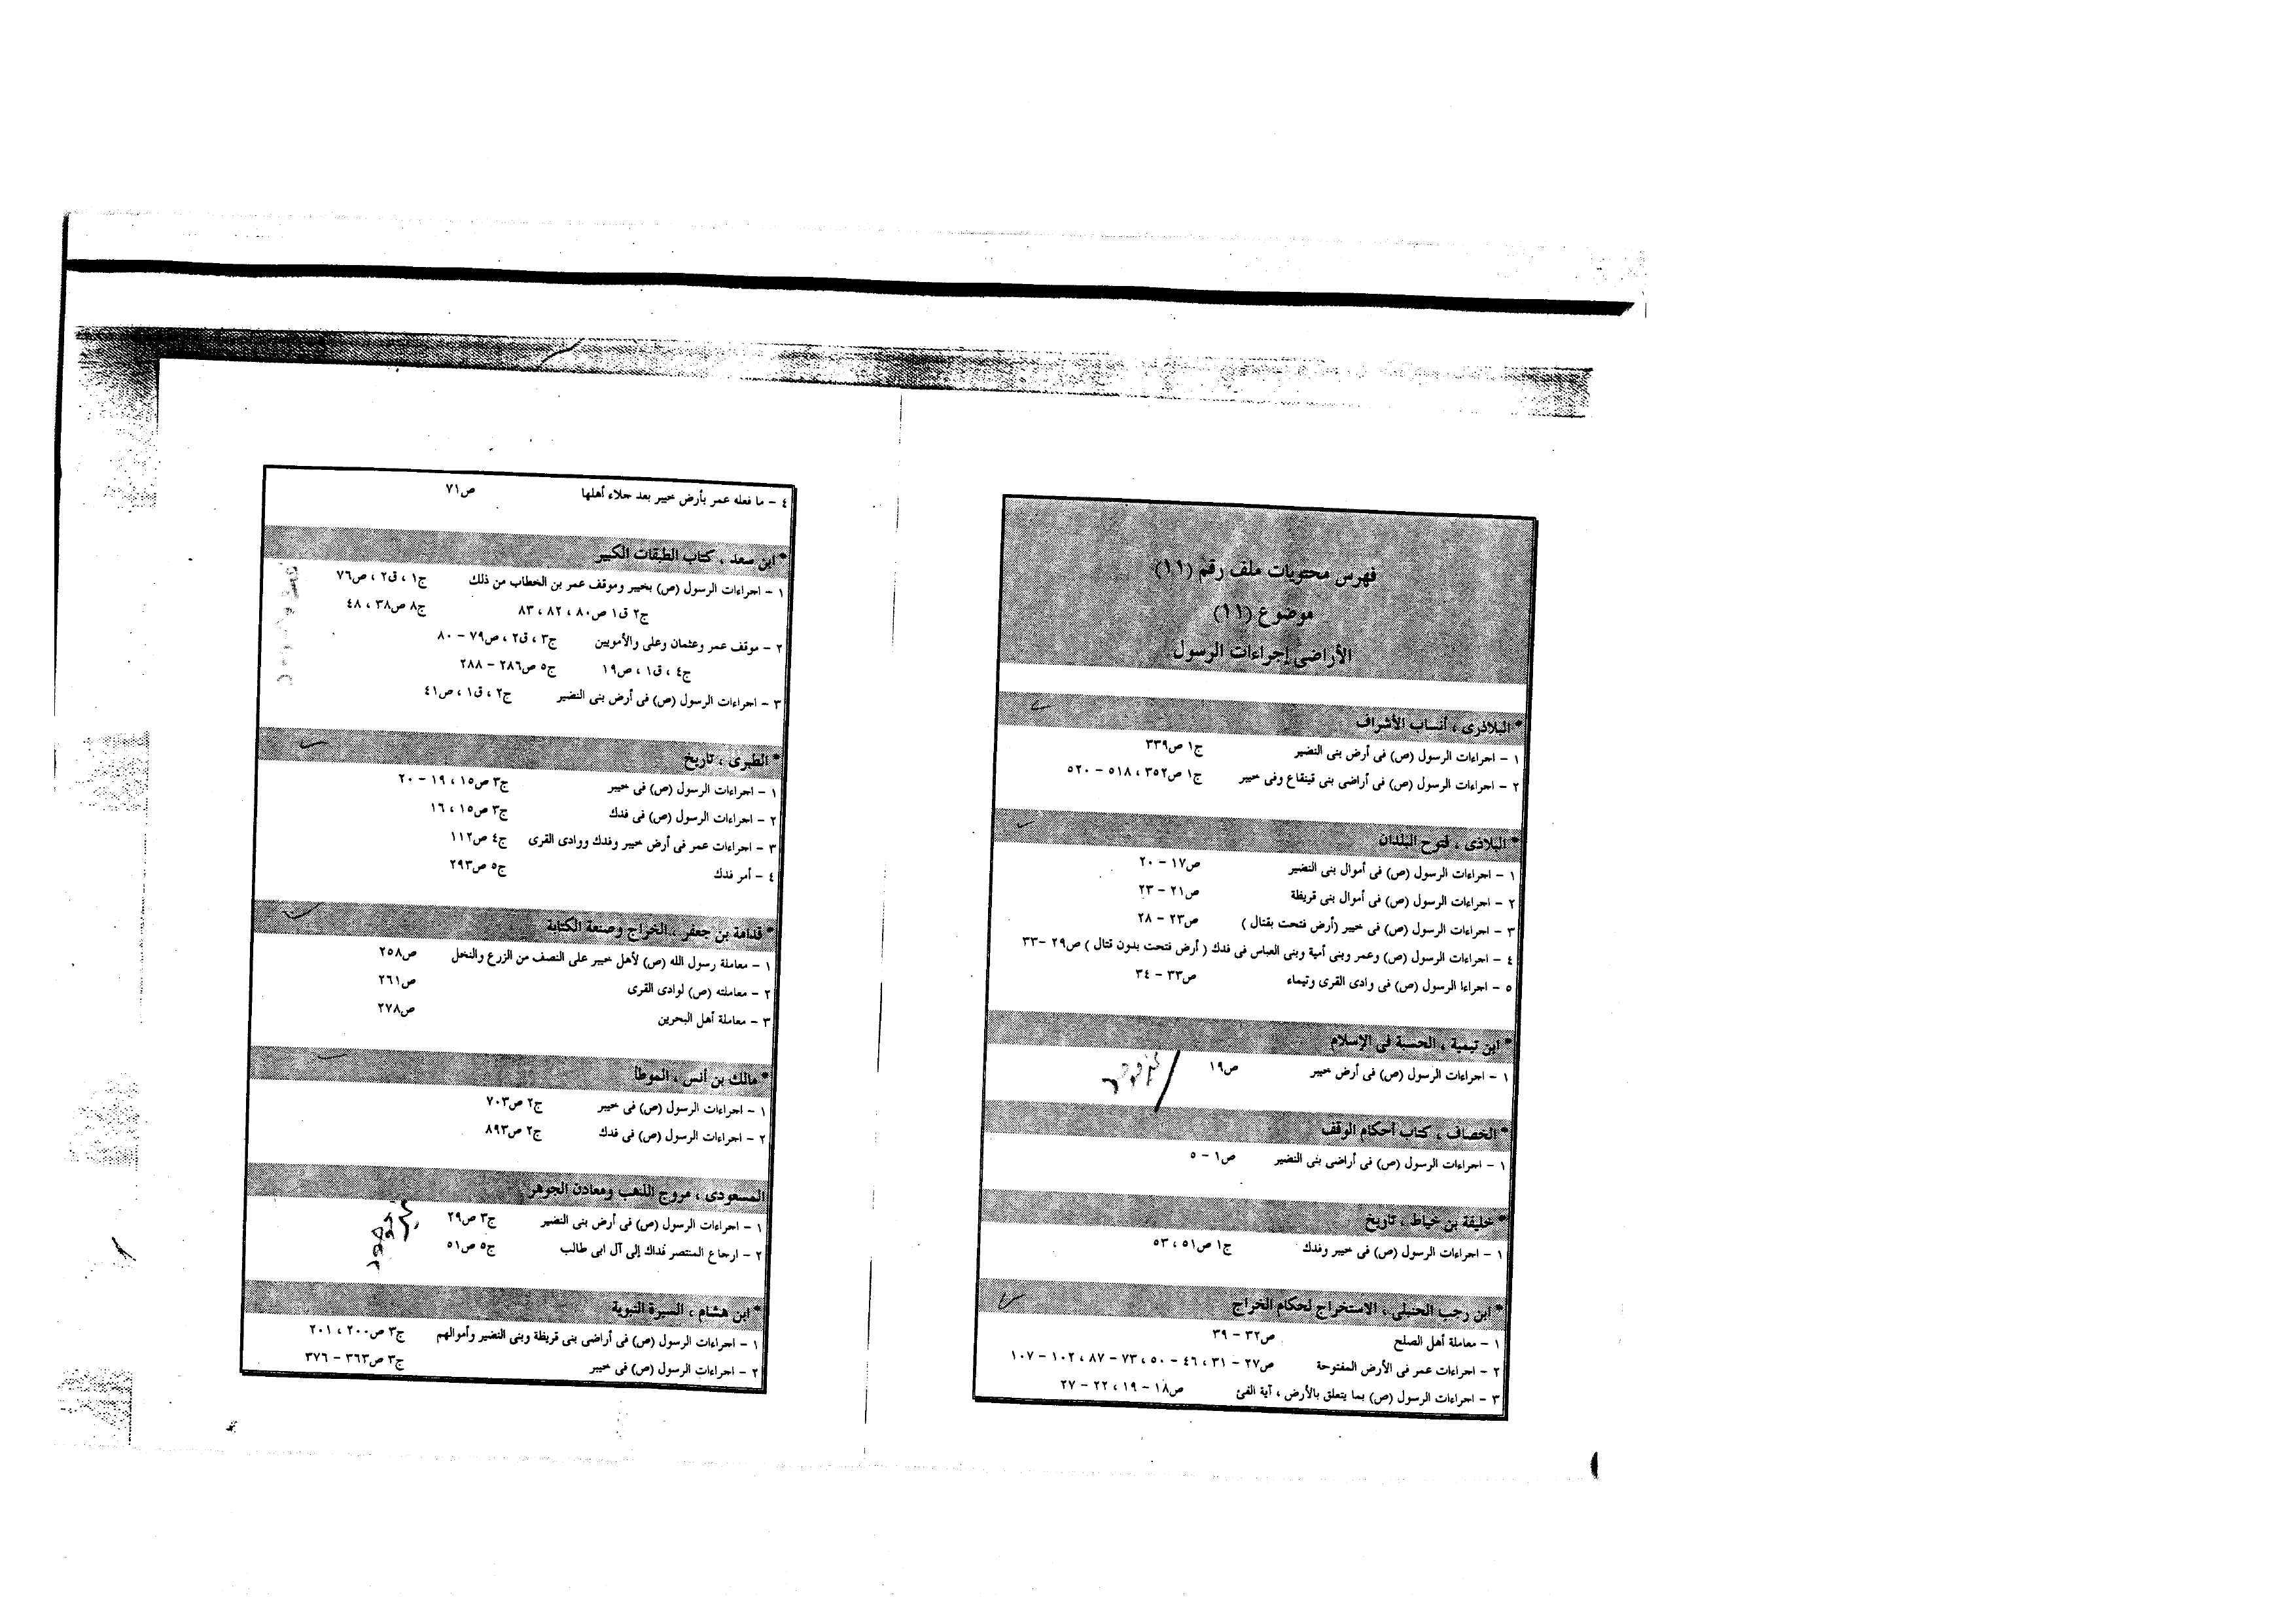 فهرس محتويات ملف رقم (١١)
موضوع (١١)
الأراضى إجراءات الرسول
* البلاذرى ، أنساب الأشراف
١ - اجراءات الرسول (ص) فى أرض بنى النضير ج١ ص٣٣٩
٢ - اجراءات الرسول (ص) فى أراضى بنى قينقاع وفى خيبر ج١ ص٣٥٢ ، ٥١٨ - ٥٢٠
* البلاذى ، فتوح البلدان
١ - اجراءات الرسول (ص) فى أموال بنى النضير ص١٧ - ٢٠
٢ - اجراءات الرسول (ص) فى أموال بنى قريظة ص٢١ - ٢٣
٣ - اجراءات الرسول (ص) فى خيبر (أرض فتحت بقتال ) ص٢٣ - ٢٨
٤ - اجراءات الرسول (ص) وعمر وبنى أمية وبنى العباس فى فدك ( أرض فتحت بدون قتال ) ص٢٩ -٣٣
٥ - اجراءا الرسول (ص) فى وادى القرى وتيماء ص٣٣ - ٣٤
* ابن تيمية ، الحسبة فى الإسلام
١ - اجراءات الرسول (ص) فى أرض خيبر ص١٩
* الخصاف ، كتاب أحكام الوقف
١ - اجراءات الرسول (ص) فى أراضى بنى النضير ص١ - ٥
* خليفة بن خياط ، تاريخ
١ - اجراءات الرسول (ص) فى خيبر وفدك ج١ ص٥١ ، ٥٣
* ابن رجب الحنبلى ، الاستخراج لحكام الخراج
١ - معاملة أهل الصلح ص٣٢ - ٣٩
٢ - اجراءات عمر فى الأرض المفتوحة ص٢٧ - ٣١ ، ٤٦ - ٥٠ ، ٧٣ - ٨٧ ، ١٠٢ - ١٠٧
٣ - اجراءات الرسول (ص) بما يتعلق بالأرض ، آية الفئ ص١٨ - ١٩ ، ٢٢ - ٢٧
٤ - ما فعله عمر بأرض خيبر بعد جلاء أهلها ص٧١
* ابن سعد ، كتاب الطبقات الكبير
١ - اجراءات الرسول (ص) بخيبر وموقف عمر بن الخطاب من ذلك ج١ ، ق٢ ، ص٧٦
ج٢ ق١ ص٨٠ ، ٨٢ ، ٨٣ ج٨ ص٣٨ ، ٤٨
٢ - موقف عمر وعثمان وعلى والأمويين ج٣ ، ق٢ ، ص٧٩ - ٨٠
ج٤ ، ق١ ، ص١٩ ج٥ ص٢٨٦ - ٢٨٨
٣ - اجراءات الرسول (ص) فى أرض بنى النضير ج٢ ، ق١ ، ص٤١
* الطبرى ، تاريخ
١ - اجراءات الرسول (ص) فى خيبر ج٣ ص١٥ ، ١٩ - ٢٠
٢ - اجراءات الرسول (ص) فى فدك ج٣ ص١٥ ، ١٦
٣ - اجراءات عمر فى أرض خيبر وفدك ووادى القرى ج٤ ص١١٢
٤ - أمر فدك ج٥ ص٢٩٣
* قدامة بن جعفر ، الخراج وصنعة الكتابة
١ - معاملة رسول الله (ص) لأهل خيبر على النصف من الزرع والنخل ص٢٥٨
٢ - معاملته (ص) لوادى القرى ص٢٦١
٣ - معاملة أهل البحرين ص٢٧٨
* مالك بن أنس ، الموطأ
١ - اجراءات الرسول (ص) فى خيبر ج٢ ص٧٠٣
٢ - اجراءات الرسول (ص) فى فدك ج٢ ص٨٩٣
المسعودى ، مروج الذهب ومعادن الجوهر
١ - اجراءات الرسول (ص) فى أرض بنى النضير ج٣ ص٢٩
٢ - ارجاع المنتصر فداك إلى آل ابى طالب ج٥ ص٥١
* ابن هشام ، السيرة النبوية
١ - اجراءات الرسول (ص) فى أراضى بنى قريظة وبنى النضير وأموالهم ج٣ ص٢٠٠ ، ٢٠١
٢ - اجراءات الرسول (ص) فى خيبر ج٣ ص٣٦٣ - ٣٧٦